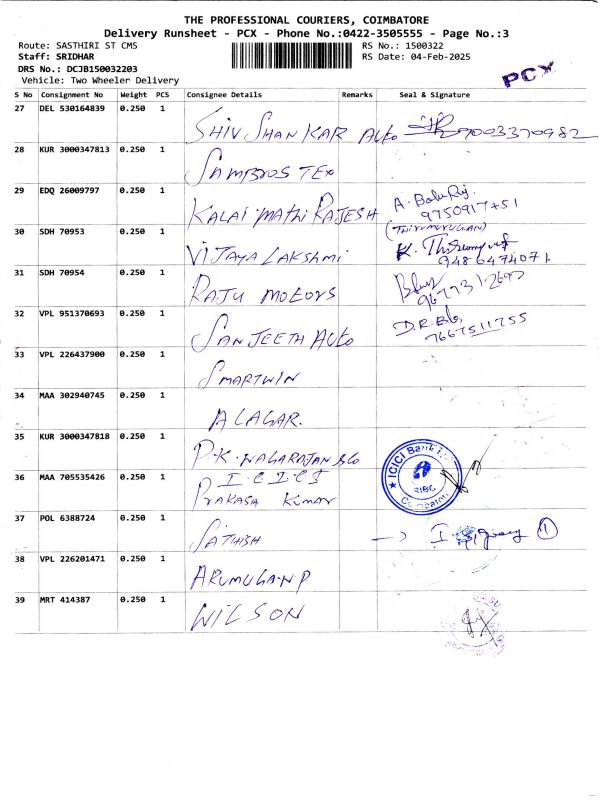 THE PROFESSIONAL COURIERS, COIMBATORE
Delivery Runsheet - PCX - Phone No.:0422-3505555 - Page No.:3
Route: SASTHIRI ST CMS RS No.: 1500322
Staff: SRIDHAR RS Date: 04-Feb-2025
DRS No.: DCJB150032203
Vehicle: Two Wheeler Delivery
PCX
S No Consignment No Weight PCS Consignee Details Remarks Seal & Signature
27 DEL 530164839 0.250 1 SHIV SHANKAR Auto 9003370982
28 KUR 3000347813 0.250 1 SAMBROS TEX
29 EDQ 26009797 0.250 1 KALAI MATHI RAJESH A. Balu Raj.
30 SDH 70953 0.250 1 VIJAYA LAKSHMI 9486474071
31 SDH 70954 0.250 1 RAJU MOTORS
32 VPL 951370693 0.250 1 SANJEETH AUTO 7667511755
33 VPL 226437900 0.250 1 SMARTWIN
34 MAA 302940745 0.250 1 ALAGAR.
35 KUR 3000347818 0.250 1 P.K. NAGARAJAN &Co
ICICI Bank
RIBG
36 MAA 705535426 0.250 1 I.C.I.C.I
PRAKASA KUMAR
37 POL 6388724 0.250 1 SATHISH
38 VPL 226201471 0.250 1 ARUMUGA.N.P
39 MRT 414387 0.250 1 WILSON